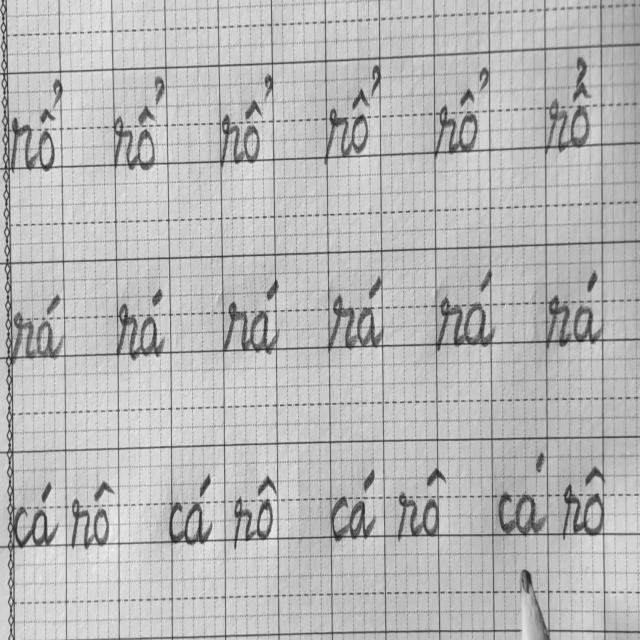 rổ rổ rổ rổ rổ rổ
rá rá rá rá rá rá
cá rô cá rô cá rô cá rô